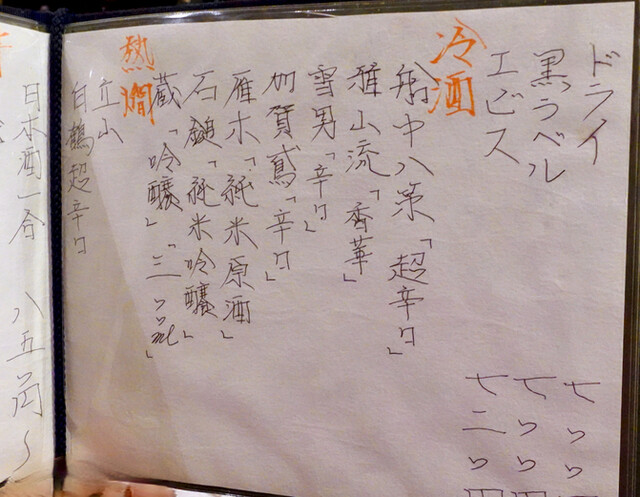 ドライ 七〇〇
黒ラベル 七〇〇円
エビス 七二〇円
冷酒
船中八策「超辛口」
雅山流「香華」
雪男「辛口」
加賀鳶「辛口」
雁木「純米原酒」
石鎚「純米吟醸」
蔵「吟醸」「三〇〇ml」
熱燗
立山
白鶴超辛口
日本酒一合 八五〇円〜